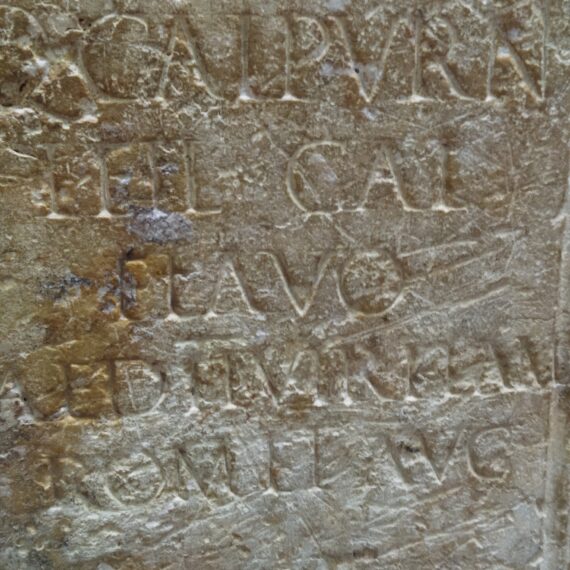 CALPVRN
P FIL GAL
FLAVO
AED II VIR FLAM
ROM ET AVG